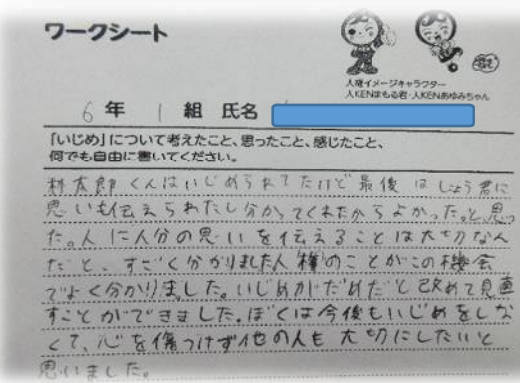 ワークシート
人権イメージキャラクター
人KENまもる君・人KENあゆみちゃん
6年 1組 氏名
「いじめ」について考えたこと、思ったこと、感じたこと、
何でも自由に書いてください。
林太郎くんはいじめられてたけど最後はしょう君に
思いも伝えられたし分かってくれたからよかった。と思っ
た。人に人分の思いを伝えることは大切なん
だと、すごく分かりました人権のことがこの機会
でよく分かりました。いじめがだめだと改めて見直
すことができました。ぼくは今後もいじめをしな
くて、心を傷つけず他の人も大切にしたいと
思いました。